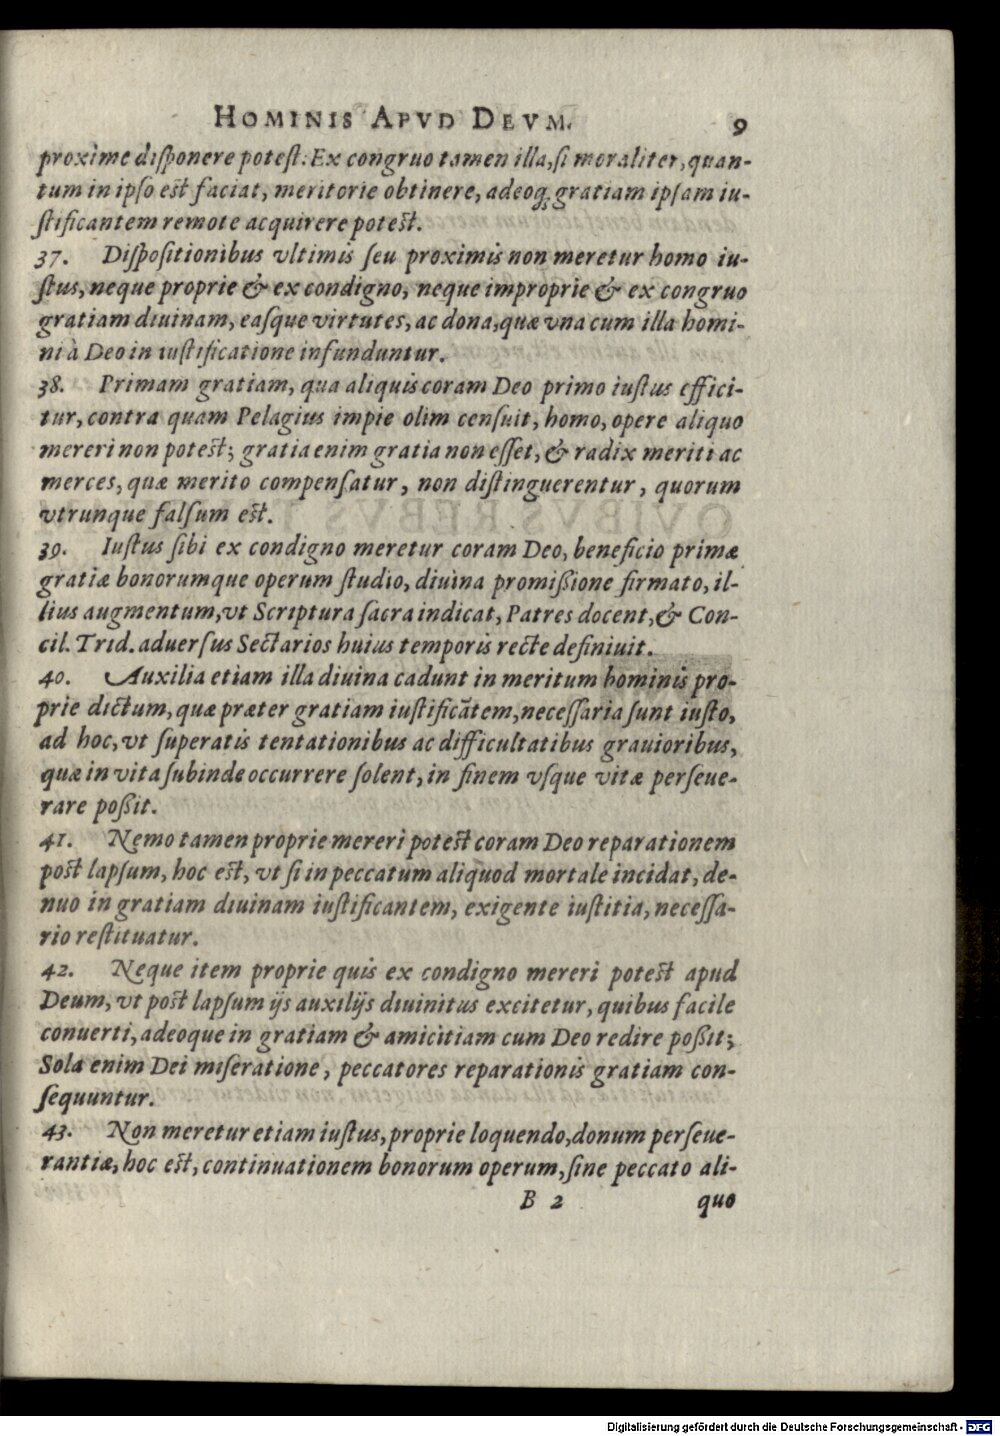 HOMINIS APVD DEVM. 9
proxime disponere potest. Ex congruo tamen illa, si moraliter, quan-
tum in ipso est faciat, meritorie obtinere, adeoq; gratiam ipsam iu-
stificantem remote acquirere potest.
37. Dispositionibus vltimis seu proximis non meretur homo iu-
stus, neque proprie & ex condigno, neque improprie & ex congruo
gratiam diuinam, easque virtutes, ac dona, quæ vna cum illa homi-
ni à Deo in iustificatione infunduntur.
38. Primam gratiam, qua aliquis coram Deo primo iustus effici-
tur, contra quam Pelagius impie olim censuit, homo, opere aliquo
mereri non potest; gratia enim gratia non esset, & radix meriti ac
merces, quæ merito compensatur, non distinguerentur, quorum
vtrunque falsum est.
39. Iustus sibi ex condigno meretur coram Deo, beneficio primæ
gratiæ bonorumque operum studio, diuina promißione firmato, il-
lius augmentum, vt Scriptura sacra indicat, Patres docent, & Con-
cil. Trid. aduersus Sectarios huius temporis recte definiuit.
40. Auxilia etiam illa diuina cadunt in meritum hominis pro-
prie dictum, quæ præter gratiam iustificãtem, necessaria sunt iusto,
ad hoc, vt superatis tentationibus ac difficultatibus grauioribus,
quæ in vita subinde occurrere solent, in finem vsque vitæ perseue-
rare poßit.
41. Nemo tamen proprie mereri potest coram Deo reparationem
post lapsum, hoc est, vt si in peccatum aliquod mortale incidat, de-
nuo in gratiam diuinam iustificantem, exigente iustitia, necessa-
rio restituatur.
42. Neque item proprie quis ex condigno mereri potest apud
Deum, vt post lapsum ijs auxilijs diuinitus excitetur, quibus facile
conuerti, adeoque in gratiam & amicitiam cum Deo redire poßit;
Sola enim Dei miseratione, peccatores reparationis gratiam con-
sequuntur.
43. Non meretur etiam iustus, proprie loquendo, donum perseue-
rantiæ, hoc est, continuationem bonorum operum, sine peccato ali-
B 2 quo
Digitalisierung gefördert durch die Deutsche Forschungsgemeinschaft - DFG